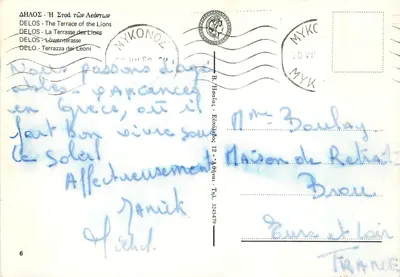 ΔΗΛΟΣ - Ἡ Στοά τῶν Λεόντων
DELOS - The Terrace of the Lions
DELOS - La Terrasse des Lions
DELOS - Löwenterrasse
DELO - Terrazza dei Leoni
ΜΥΚΟΝΟΣ
ΜΥΚ
Nous passons d'agré
ables vacances
en Grèce, où il
fait bon vivre sous
le Soleil
Affectueusement
Janick
Michel
Mme Boulay
Maison de Retrait
Brou
Eure et Loir
FRANCE
6